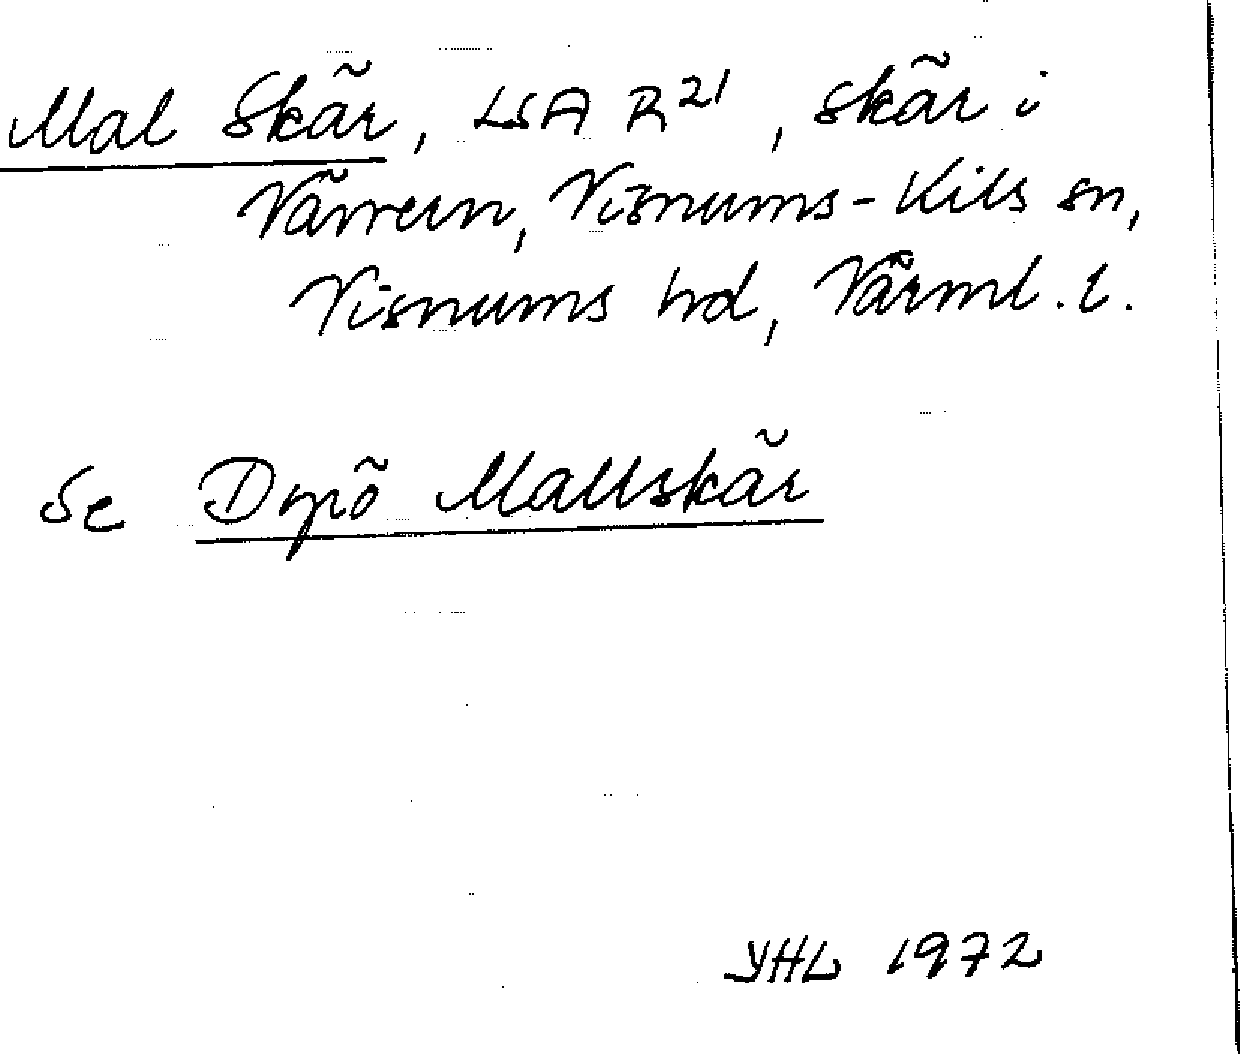 Mal Skär, LSA R 21, skär i
Vänern, Visnums-Kils sn,
Visnums hd, Värml. l.
Se Dypö Mallskär
YHL 1972